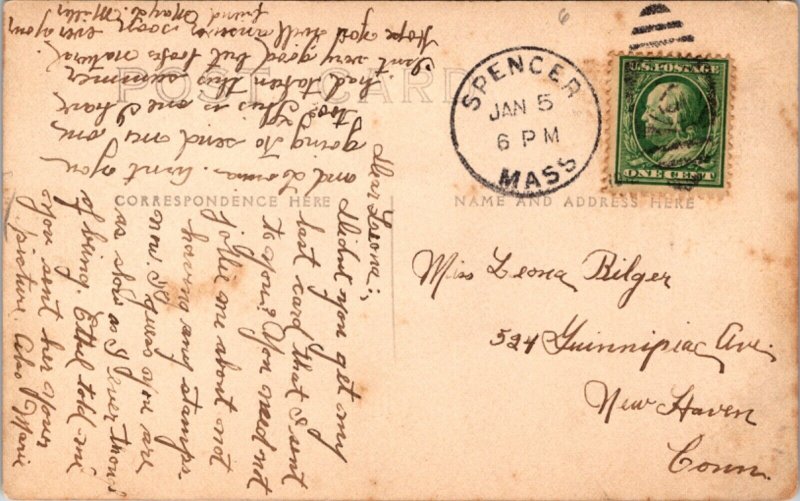 POST CARD
CORRESPONDENCE HERE
NAME AND ADDRESS HERE
SPENCER
JAN 5
6 PM
MASS
U.S. POSTAGE
ONE CENT
Miss Leona Bilger
524 Quinnipiac Ave.
New Haven
Conn.
Dear Leona;,
Didn't you get my
last card that I sent
to you? You need not
jollie me about not
having any stamps
now I guess you are
as slow as I ever thou't
of being. Ethel told me
you sent her your
picture also Marie
and Lorna. Aint you
going to send me one
too. This is one I have
had taken this summer
Isn't very good but looks natural.
Hope you will answer soon. ever your
friend Mayde. Miller
6